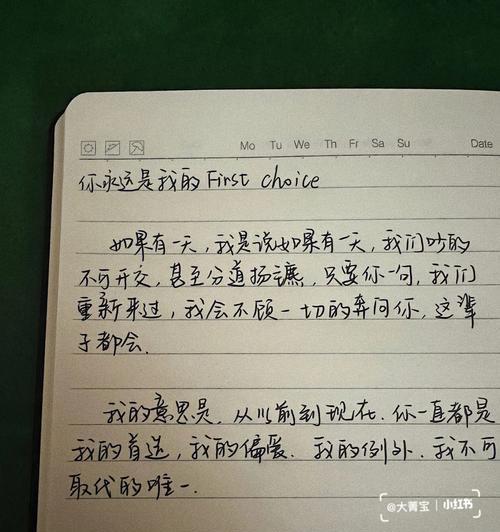 Mo Tu We Th Fr Sa Su Date
你永远是我的First choice
如果有一天,我是说如果有一天,我们吵的
不可开交,甚至分道扬镳,只要你一句,我们
重新来过,我会不顾一切的奔向你,这辈
子都会.
我的意思是,从以前到现在.你一直都是
我的首选,我的偏爱.我的例外.我不可
取代的唯一.
@大菁宝 | 小红书